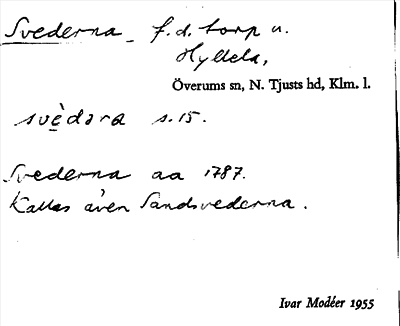 Svederna f.d. torp u.
Hyllela,
Överums sn, N. Tjusts hd, Klm. l.
svèdəra s. 15.
Svederna aa 1787.
Kallas även Sandsvederna.
Ivar Modéer 1955